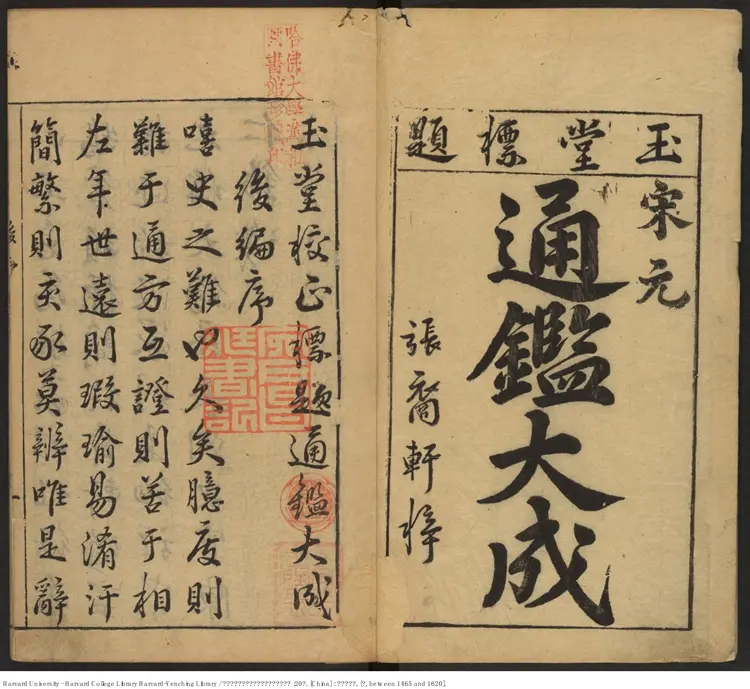 玉堂標題
宋元
通鑑大成
張裔軒梓
哈佛大學漢和
圖書館珍藏印
玉堂校正標題通鑑大成
後編序
嘻史之難也久矣臆度則
難于通方互證則善于相
左年世遠則瑕瑜易淆汗
簡繁則亥豕莫辨唯是辭
Harvard University - Harvard College Library Harvard-Yenching Library / ?????????????????? :20?. [China] : ?????, [?, between 1465 and 1620].